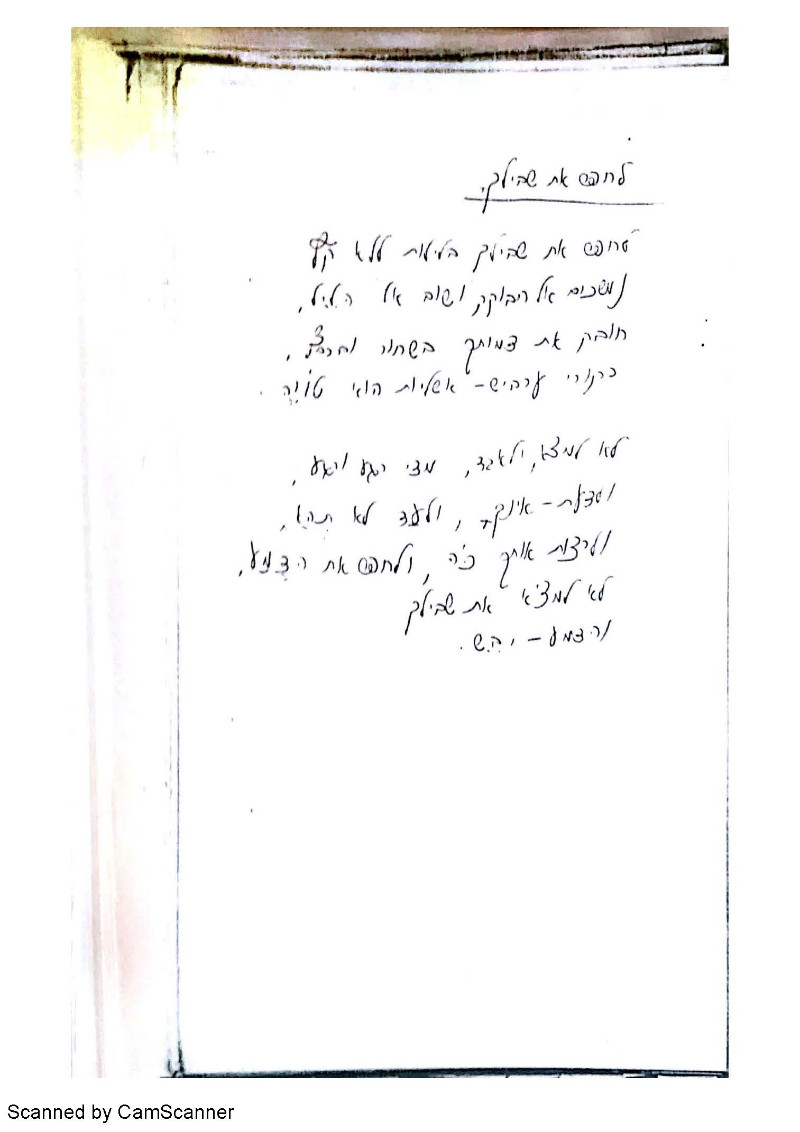 לחפש את שבילך.
לחפש את שבילך בלילות ללא קץ
נמשכים אל הבוקר, ושוב אל הליל,
חובק את דמותך בשחור
כקורי עכביש – אשליות הוא טווה.
לא למצא, ולאבד, מדי רגע ורגע,
ולדעת – אינך, ולעד לא תהא,
ולרצות אותך כה, ולחפש את הדמע,
לא למצא את שבילך
והדמע – יבש.
Scanned by CamScanner